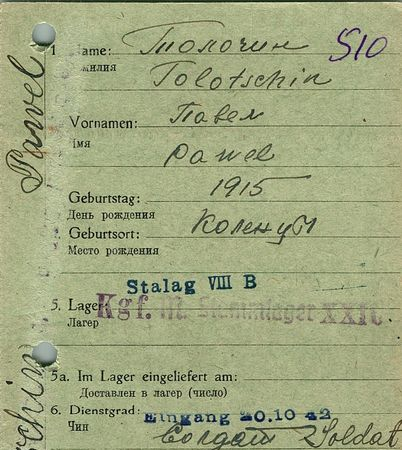 Pawel
1 Name: Толочин 510
Фамилия Tolotschin
Vornamen: Павел
Имя Pawel
Geburtstag: 1915
День рождения
Geburtsort:
Место рождения
Stalag VIII B
5. Lager Kgf. M. Stammlager
Лагер
5a. Im Lager eingeliefert am:
Доставлен в лагер (число)
6. Dienstgrad: Eingang 20.10 42
Чин Солдат Soldat